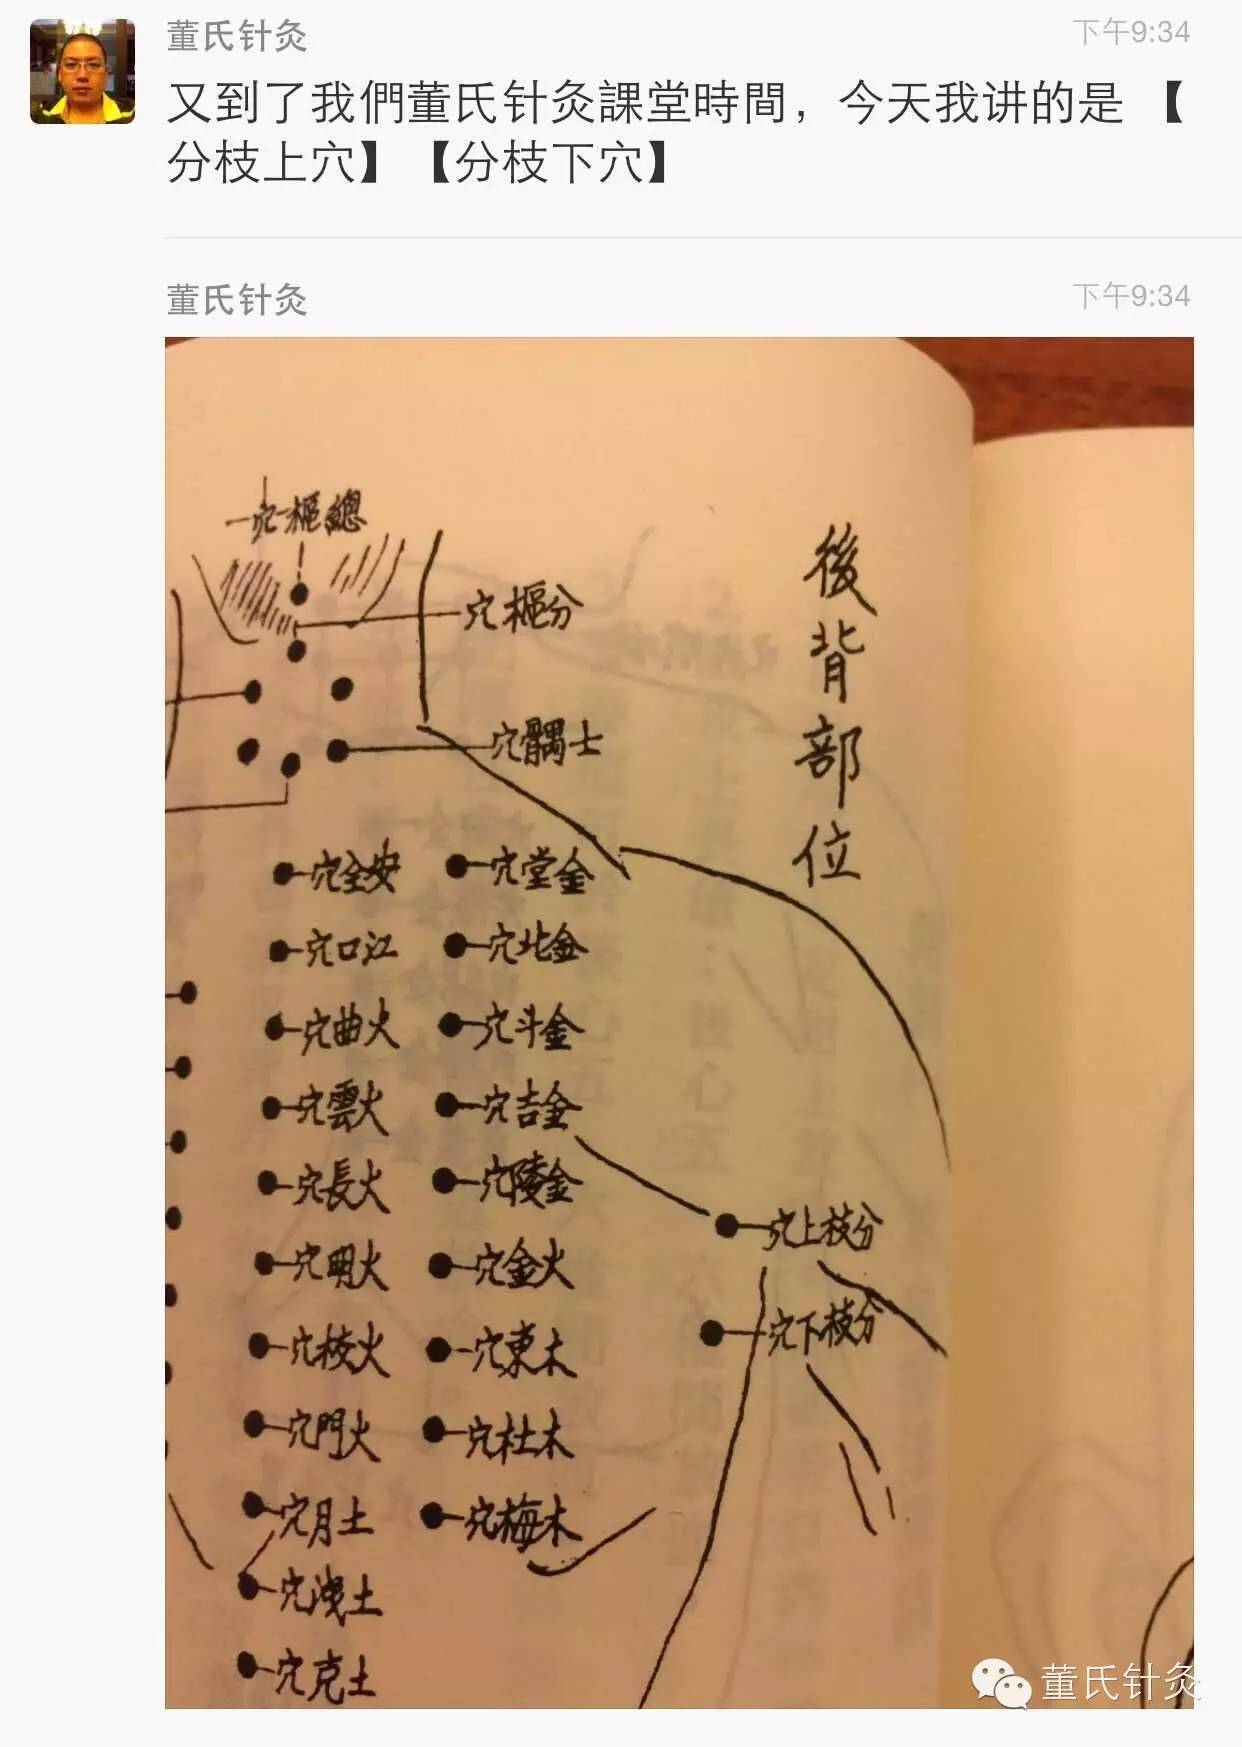 董氏针灸
下午9:34
又到了我們董氏针灸課堂時間，今天我讲的是 【
分枝上穴】【分枝下穴】
董氏针灸
下午9:34
後背部位
穴樞總
穴樞分
穴髃士
穴全安
穴堂金
穴口江
穴北金
穴曲火
穴斗金
穴雲火
穴吉金
穴長火
穴陵金
穴上枝分
穴明火
穴金火
穴下枝分
穴枝火
穴東木
穴門火
穴杜木
穴月土
穴梅木
穴洩土
穴克土
董氏针灸